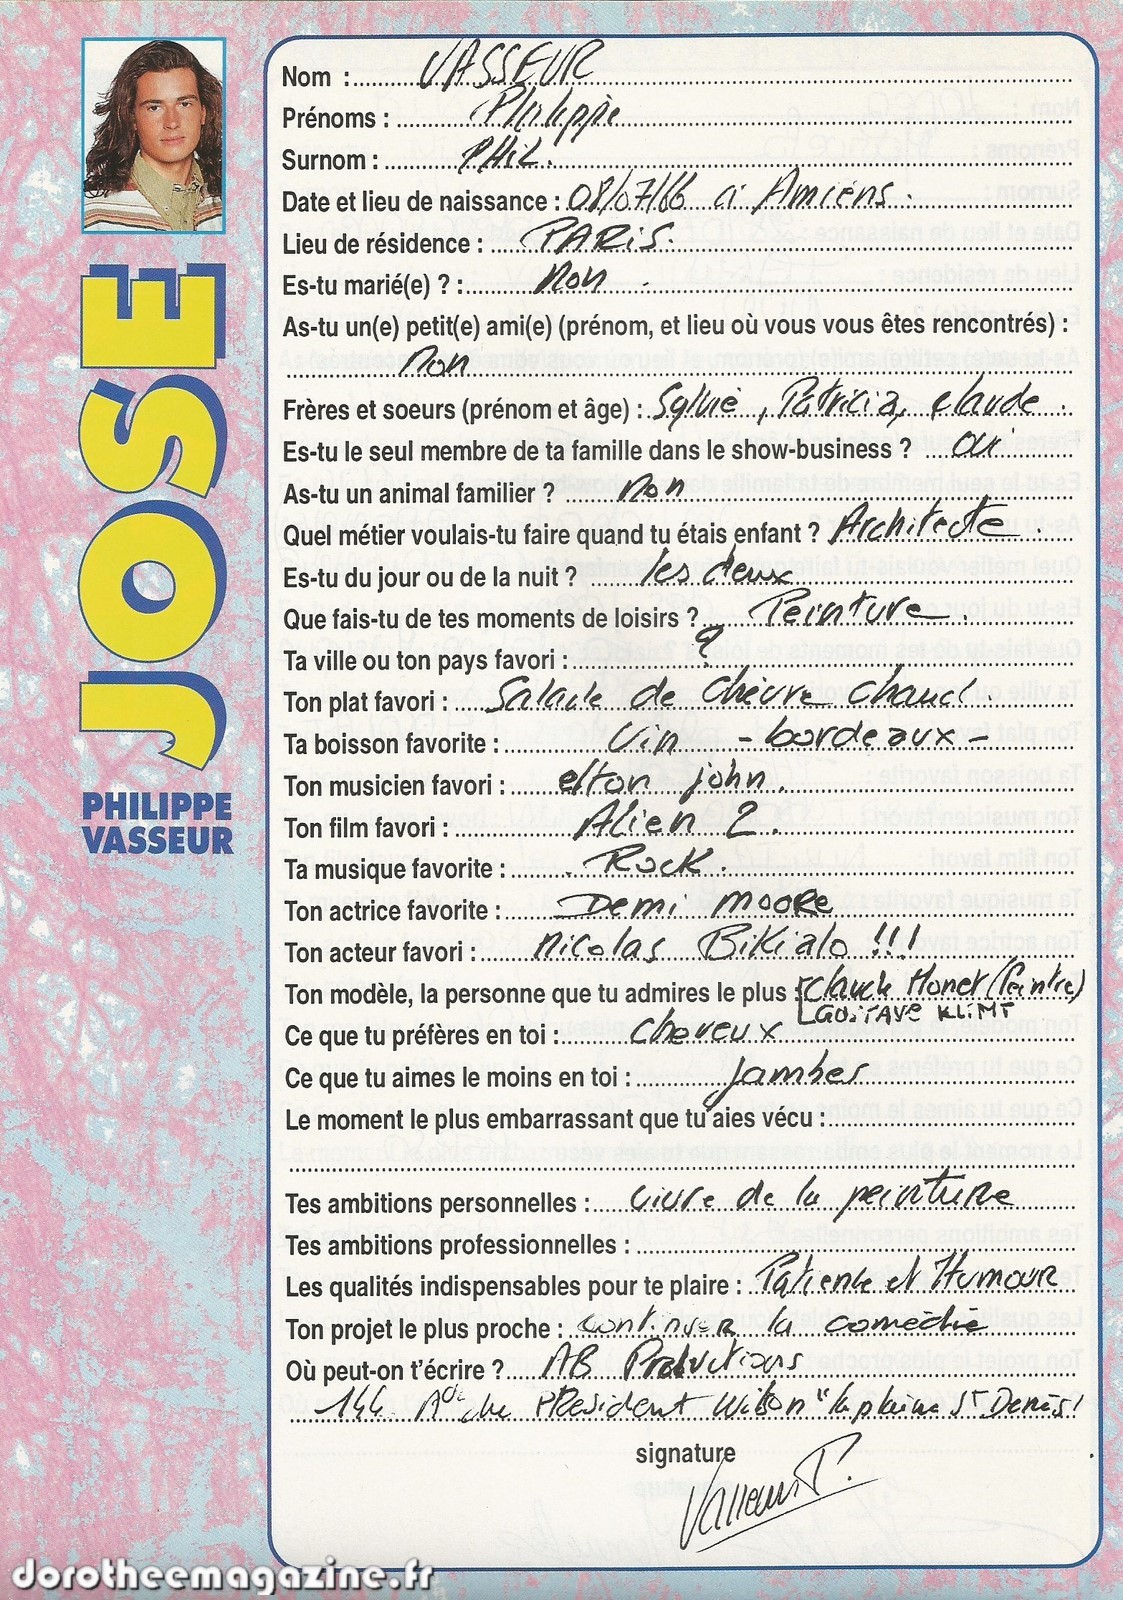 JOSE
PHILIPPE
VASSEUR
Nom : VASSEUR
Prénoms : Philippe
Surnom : PHIL.
Date et lieu de naissance : 08/07/66 à Amiens.
Lieu de résidence : PARIS.
Es-tu marié(e) ? : Non.
As-tu un(e) petit(e) ami(e) (prénom, et lieu où vous vous êtes rencontrés) :
Non
Frères et soeurs (prénom et âge) : Sylvie, Patricia, claude.
Es-tu le seul membre de ta famille dans le show-business ? oui
As-tu un animal familier ? Non
Quel métier voulais-tu faire quand tu étais enfant ? Architecte.
Es-tu du jour ou de la nuit ? les deux
Que fais-tu de tes moments de loisirs ? Peinture.
Ta ville ou ton pays favori : ?
Ton plat favori : Salade de chèvre chaud.
Ta boisson favorite : Vin - bordeaux -
Ton musicien favori : elton john.
Ton film favori : Alien 2.
Ta musique favorite : Rock.
Ton actrice favorite : Demi MOORE
Ton acteur favori : Nicolas BiKialo !!!
Ton modèle, la personne que tu admires le plus : Claude Monet (Peintre)
GUSTAVE KLIMT
Ce que tu préfères en toi : cheveux
Ce que tu aimes le moins en toi : Jambes
Le moment le plus embarrassant que tu aies vécu :
Tes ambitions personnelles : vivre de la peinture
Tes ambitions professionnelles :
Les qualités indispensables pour te plaire : Patiente et Humour
Ton projet le plus proche : continuer la comédie
Où peut-on t'écrire ? AB Productions
144 President Wilson "la plaine St Denis"
signature
Vasseur P.
dorotheemagazine.fr